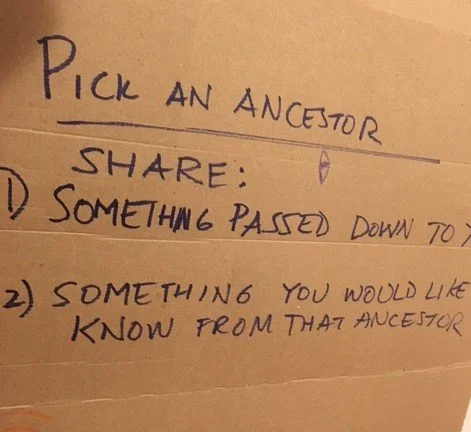 PICK AN ANCESTOR
SHARE:
1) SOMETHING PASSED DOWN TO
2) SOMETHING YOU WOULD LIKE
KNOW FROM THAT ANCESTOR